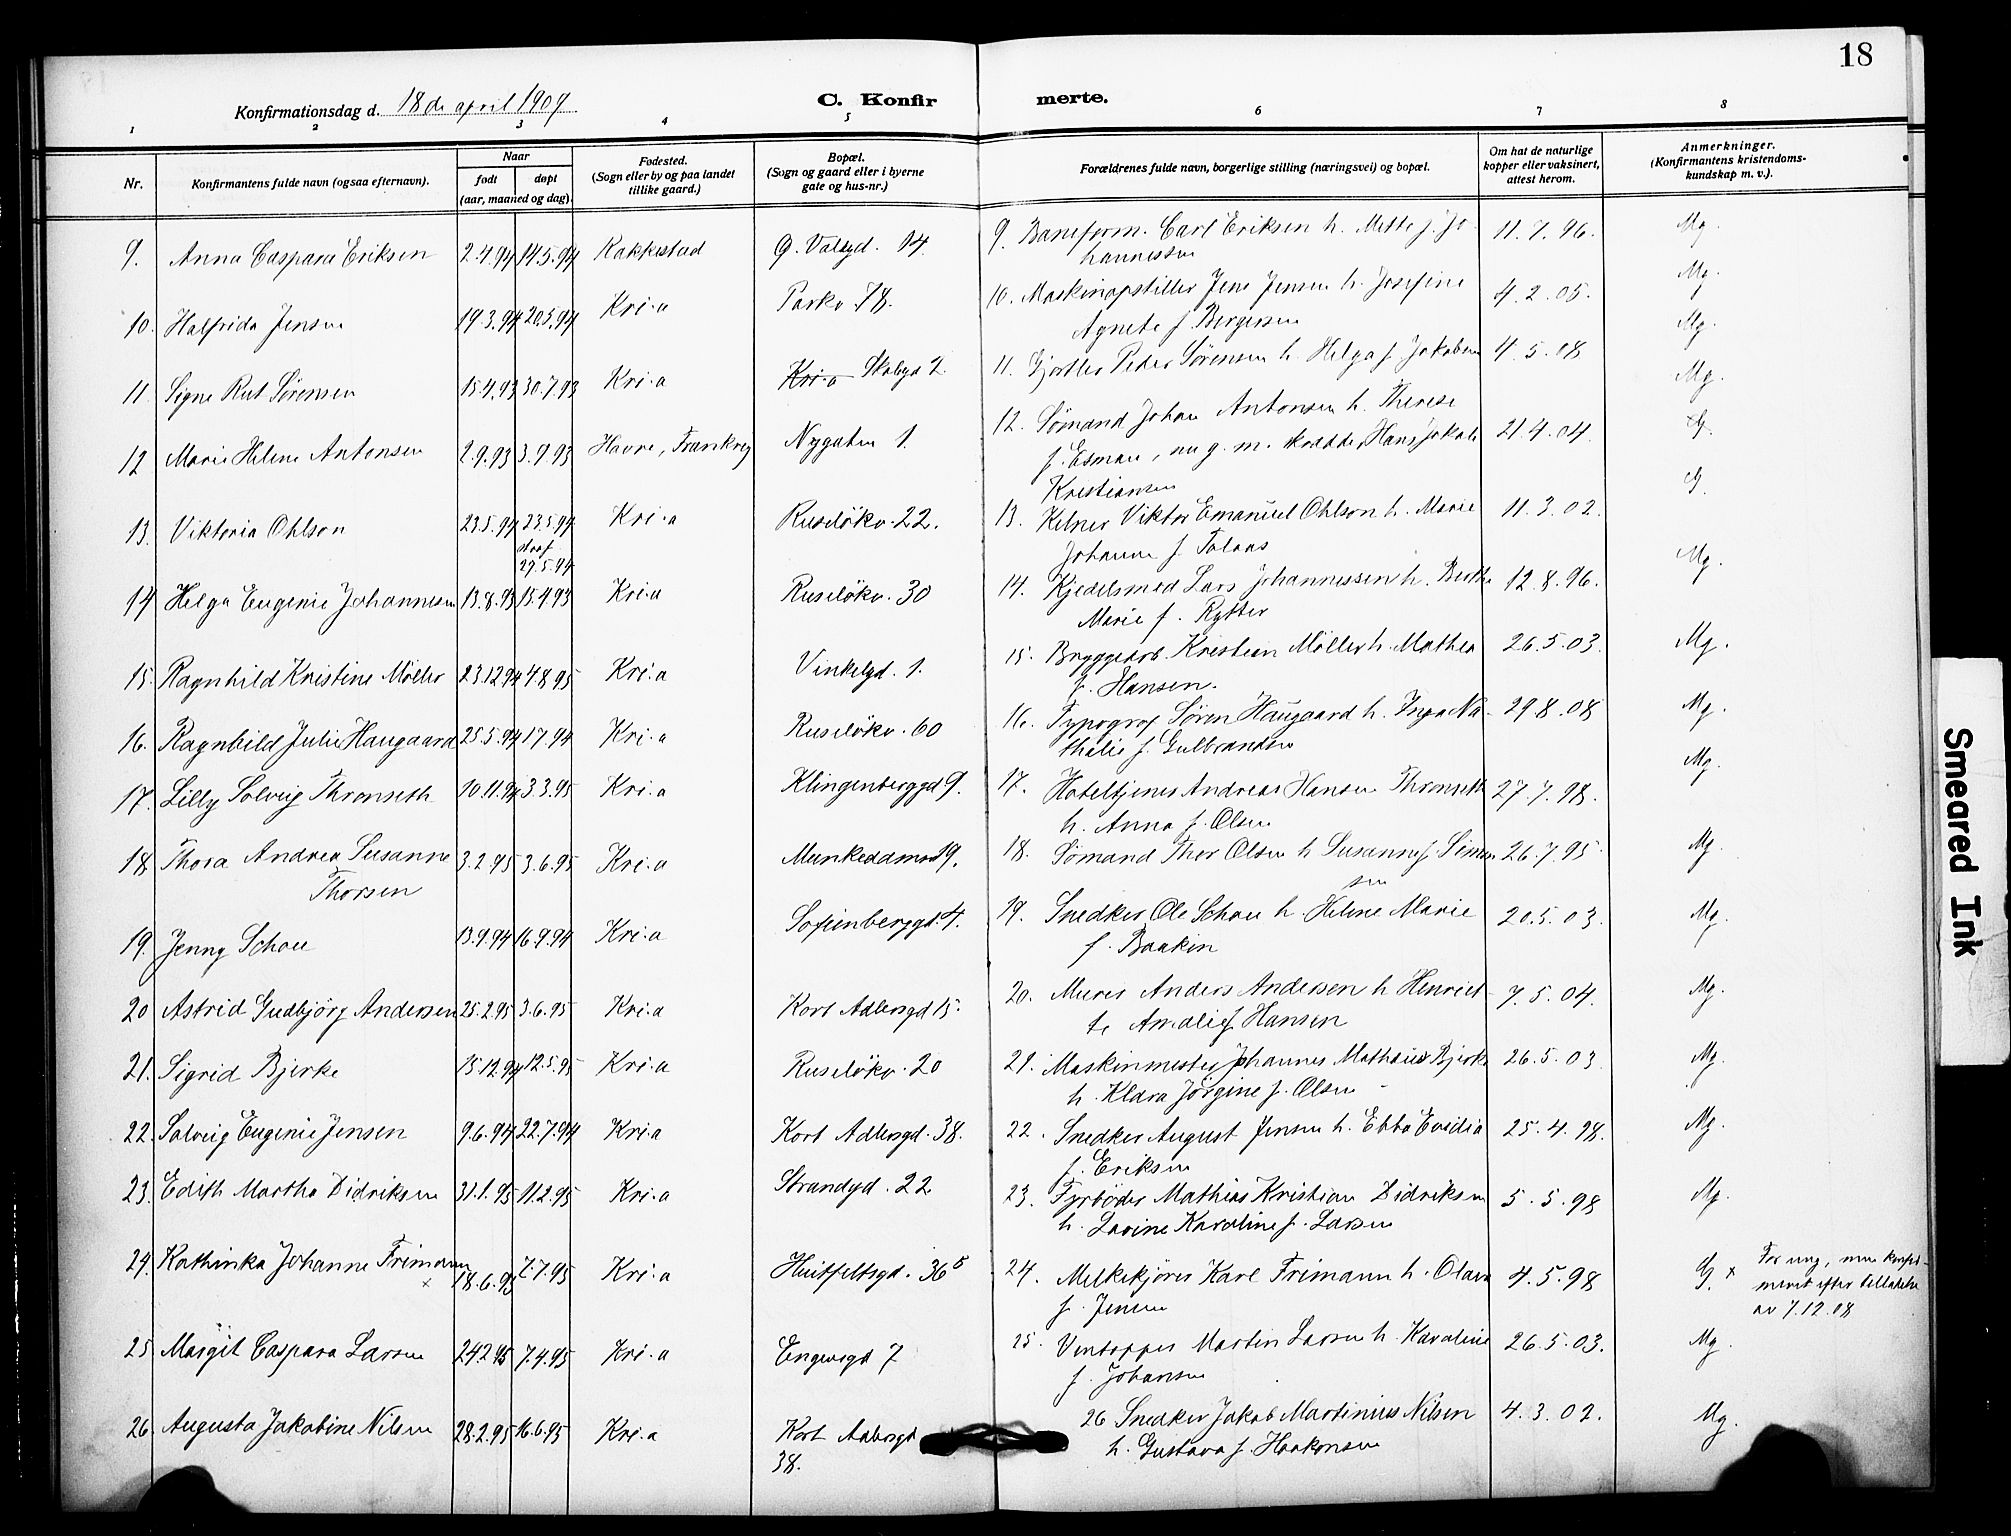 18
Konfirmationsdag d. 18de april 1909
C. Konfirmerte.
1 2 3 4 5 6 7 8
Nr.
Konfirmantens fulde navn (ogsaa efternavn).
Naar
født
døpt
(aar, maaned og dag).
Fødested.
(Sogn eller by og paa landet
tillike gaard.)
Bopæl.
(Sogn og gaard eller i byerne
gate og hus-nr.)
Forældrenes fulde navn, borgerlige stilling (næringsvei) og bopæl.
Om hat de naturlige
kopper eller vaksinert,
attest herom.
Anmerkninger.
(Konfirmantens kristendoms-
kundskap m. v.).
9. Anna Caspara Eriksen 2.4.94 14.5.94 Rakkestad G. Valsgd. 14. 9. Baneform. Carl Eriksen h. Mette f. Jo-
hannessen 11.7.96. Mg.
10. Halfrida Jensen 19.3.94 20.5.94 Kri.a Parkv. 78. 10. Maskinopstiller Jens Jensen h. Josefine
Agnete f. Bergersen 4.2.05. Mg.
11. Signe Rut Sørensen 15.4.93 30.7.93 Kri.a Kri.a Skabgd 2. 11. Gjørtler Peder Sørensen h. Helga f. Jakobsen 4.5.08 Mg.
12 Marie Helene Antonsen 2.9.93 3.9.93 Havre, Frankrig Nygaten 1. 12. Sømand Johan Antonsen h. Therese
f. Esman, nu g. m. skrædder Hans Jakob
Kristiansen 21.4.04. Mg.
13. Viktoria Ohlson 23.5.94 23.5.94
stadf.
27.5.94 Kri.a Ruseløkv. 22. 13. Kelner Viktor Emanuel Ohlson h. Marie
Johanne f. Talaas 11.3.02. G.
14 Helga Eugenie Johannesen 13.8.93 15.9.93 Kri.a Ruseløkv. 30 14. Kjedelsmed Lars Johannessen h. Berthe
Marie f. Rytter 12.8.96. G.
15. Ragnhild Kristine Möller 23.12.94 4.8.95 Kri.a Vinkelgd. 1. 15. Bryggearb. Kristian Möller h. Mathea
f. Hansen. 26.5.03. Mg.
16. Ragnhild Julie Haugaard 25.5.94 1.7.94 Kri.a Ruseløkv. 60 16. Typograf Søren Haugaard h. Inga Na-
thalie f. Gulbrandsen 29.8.08 Mg.
17. Lilly Solveig Thronseth 10.11.94 3.3.95 Kri.a Klingenberggd 9. 17. Hoteltjener Andreas Hansen Thronseth
h. Anna f. Olsen 27.7.98. Mg.
18 Thora Andrea Susanne
Thorsen 3.2.95 3.6.95 Kri.a Munkedamsv 19. 18. Sømand Thor Olsen h Susanne f. Simon-
sen 26.7.95. Mg.
19. Jenny Schou 13.9.94 16.9.94 Kri.a Sofienberggd. 4. 19. Snedker Ole Schou h. Helene Marie
f. Baakin 20.5.03. Mg.
20 Astrid Gudbjörg Andersen 25.2.95 3.6.95 Kri.a Kort Adlersgd 15. 20. Murer Anders Andersen h Henriet-
te Amalie f. Hansen 7.5.04. Mg.
21. Sigrid Bjerke 15.12.94 12.5.95 Kri.a Ruseløkv. 20 21. Maskinmester Johannes Mathæus Bjerke
h. Klara Jörgine f. Olsen 26.5.03 Mg.
22. Solveig Eugenie Jensen 9.6.94 22.7.94 Kri.a Kort Adlersgd. 38. 22. Snedker August Jensen h. Ebba Evidia
f. Eriksen 25.4.98. Mg.
23. Edith Martha Didriksen 31.1.95 11.2.95 Kri.a Strandgd. 22 23. Fyrbøder Mathias Kristian Didriksen
h. Lavine Karoline f. Larsen 5.5.98 Mg.
24. Kathinka Johanne Frimann x 18.6.95 7.7.95 Kri.a Huitfeltsgd. 36 b 24. Melkekjører Karl Frimann h. Olava
f. Jensen 4.5.98 G. x For ung, men konfir-
meret efter tilladelse
av 7.12.08
25 Margit Caspara Larsen 24.2.95 7.4.95 Kri.a Engersgd 7 25. Vintapper Martin Larsen h. Karoline
f. Johansen 26.5.03. Mg.
26. Augusta Jakobine Nilsen 28.2.95 16.6.95 Kri.a Kort Adlersgd
38. 26 Snedker Jakob Martinius Nilsen
h. Gustava f. Haakonsen 4.3.02. Mg.
Smeared Ink